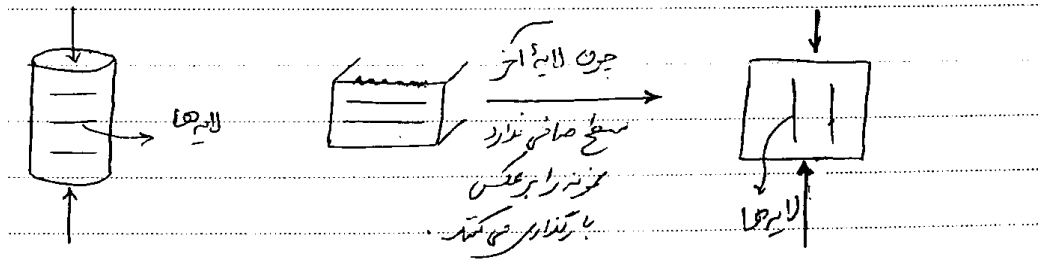 چون لایهٔ آخر
لایه‌ها
سطح صافی ندارد
نمونه را برعکس
بارگذاری می‌کنند.
لایه‌ها